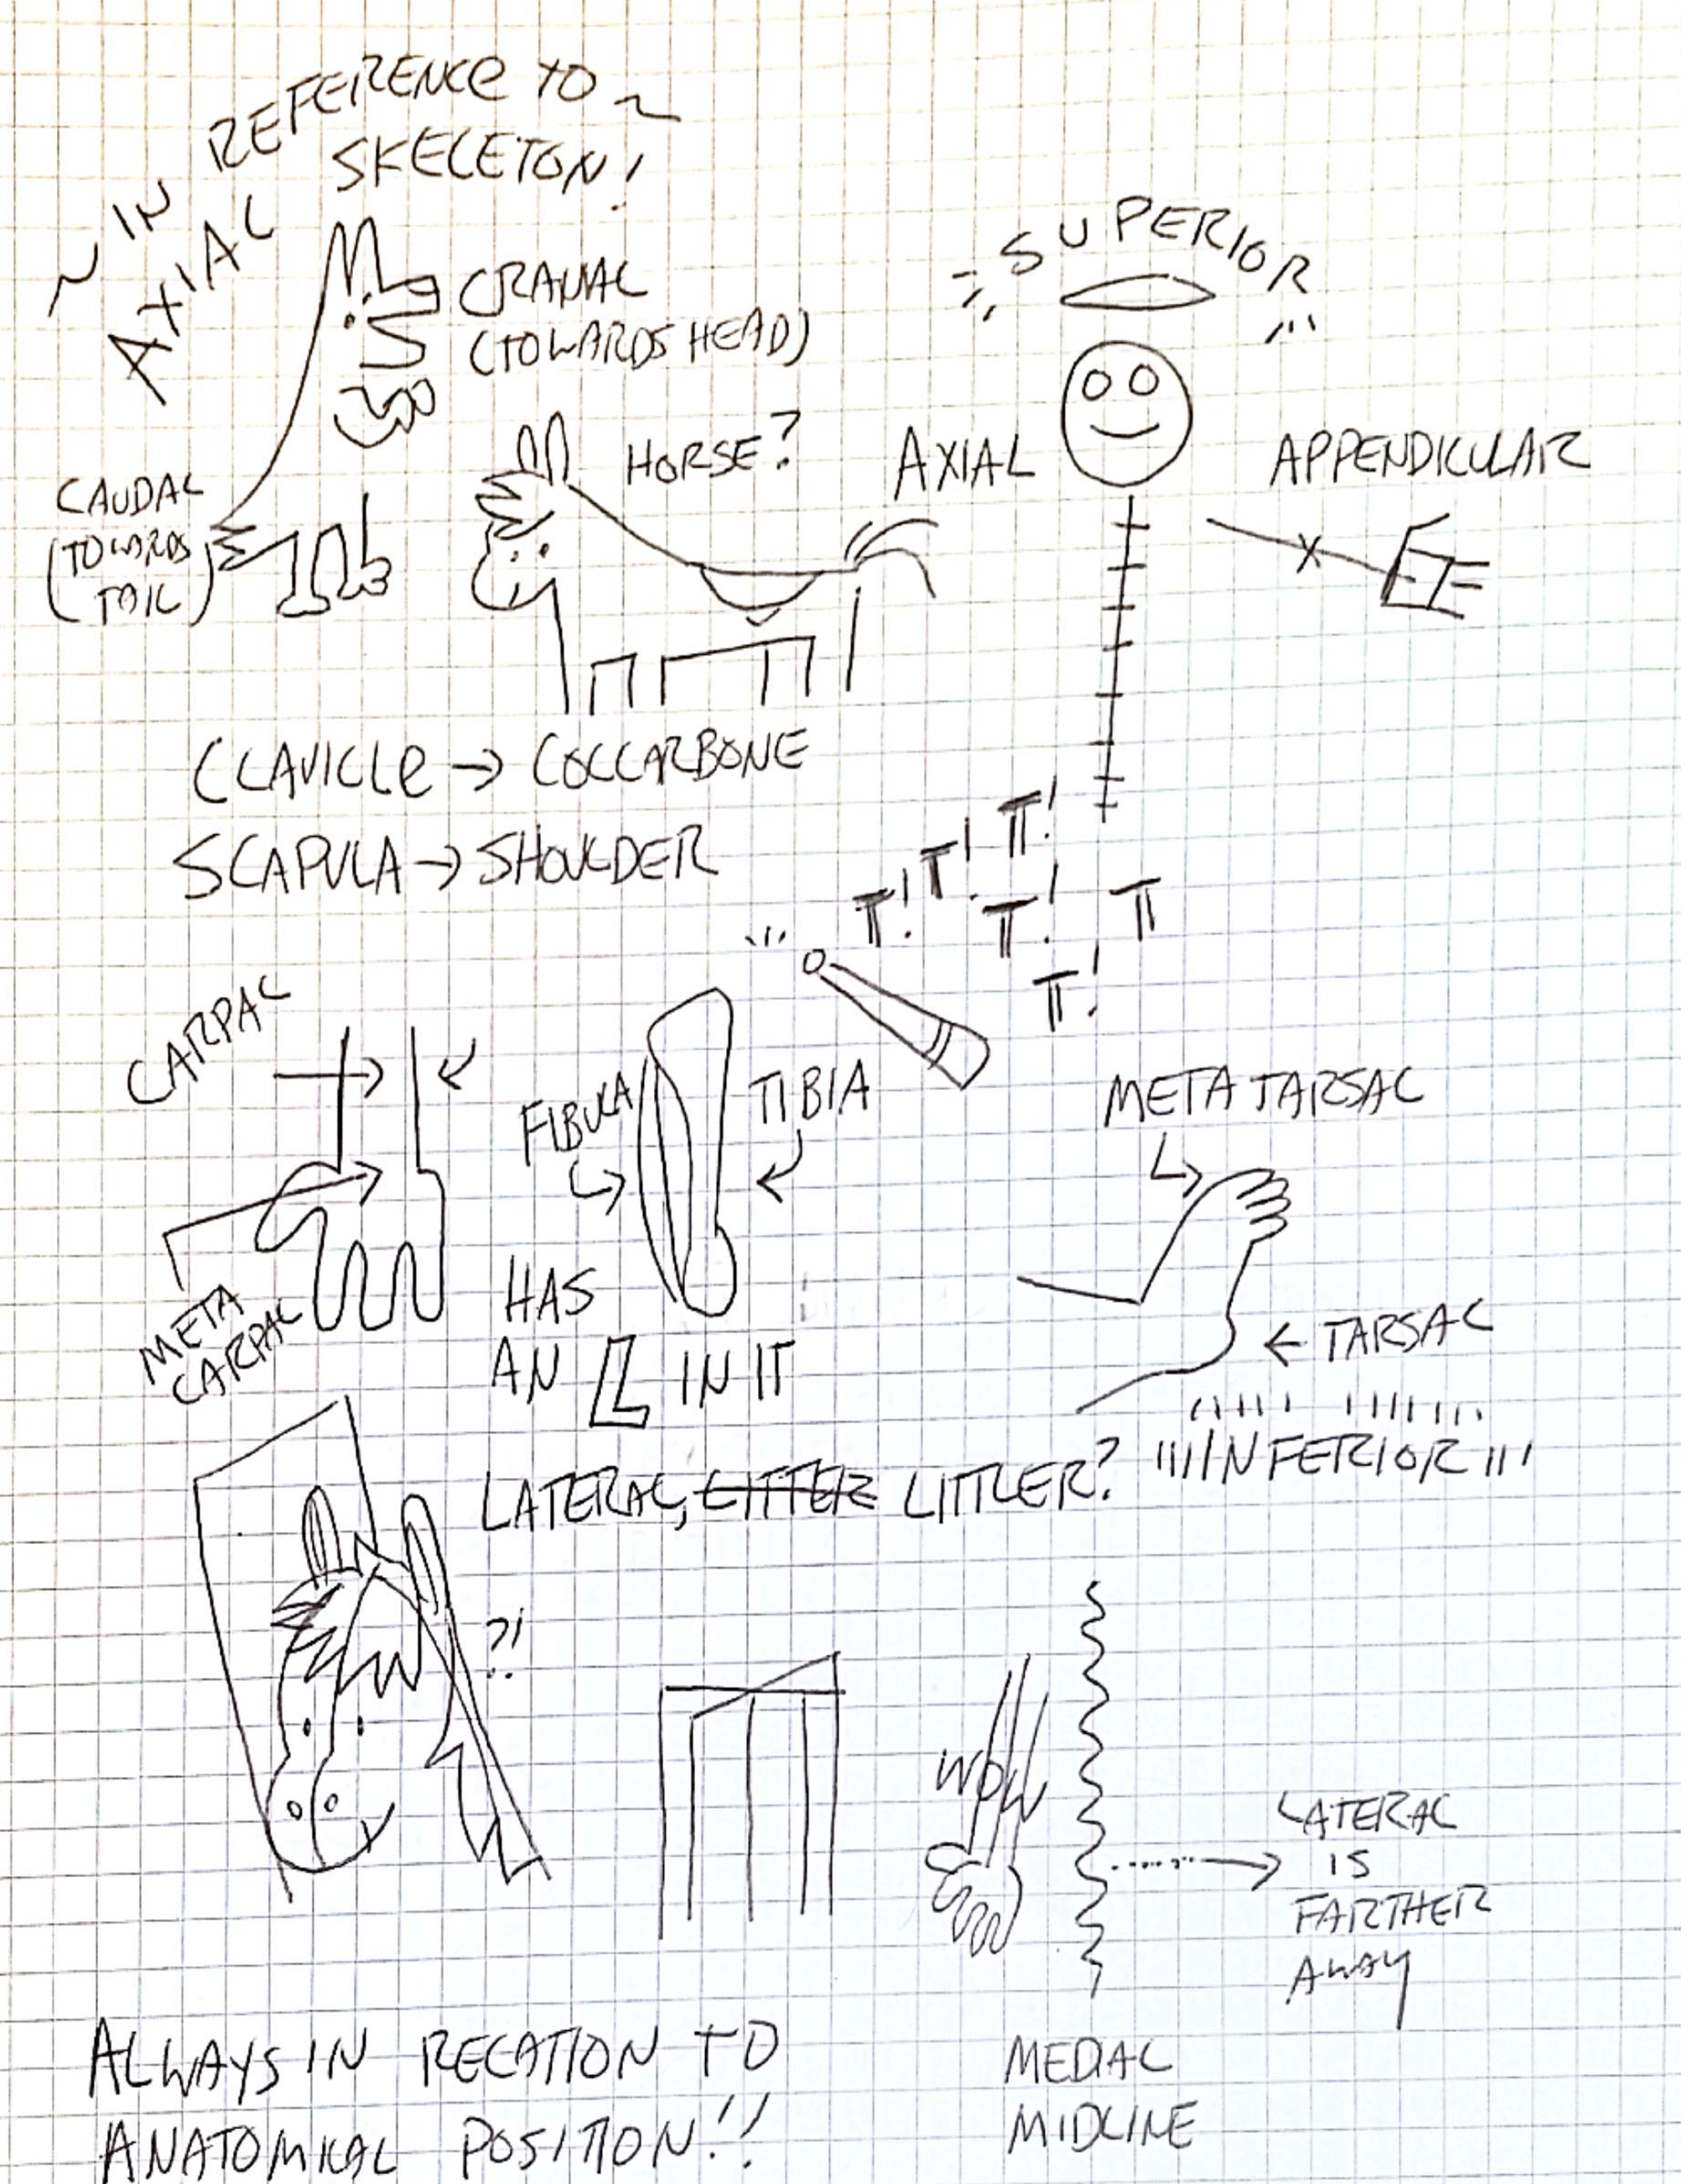 ~ IN REFERENCE TO ~
AXIAL SKELETON!
CRANAL
(TOWARDS HEAD)
SUPERIOR
HORSE?
AXIAL
APPENDICULAR
CAUDAL
(TOWARDS
TAIL)
CLAVICLE → COLLARBONE
SCAPULA → SHOULDER
T! T! T!
T! T! T
CARPAL
FIBULA
TIBIA
META TARSAL
META
CARPAL
HAS
AN L IN IT
← TARSAL
LATERAL, LITTER LITTLER?
INFERIOR
?!
WOW
LATERAL
IS
FARTHER
AWAY
ALWAYS IN RELATION TO
ANATOMICAL POSITION!!
MEDIAL
MIDLINE